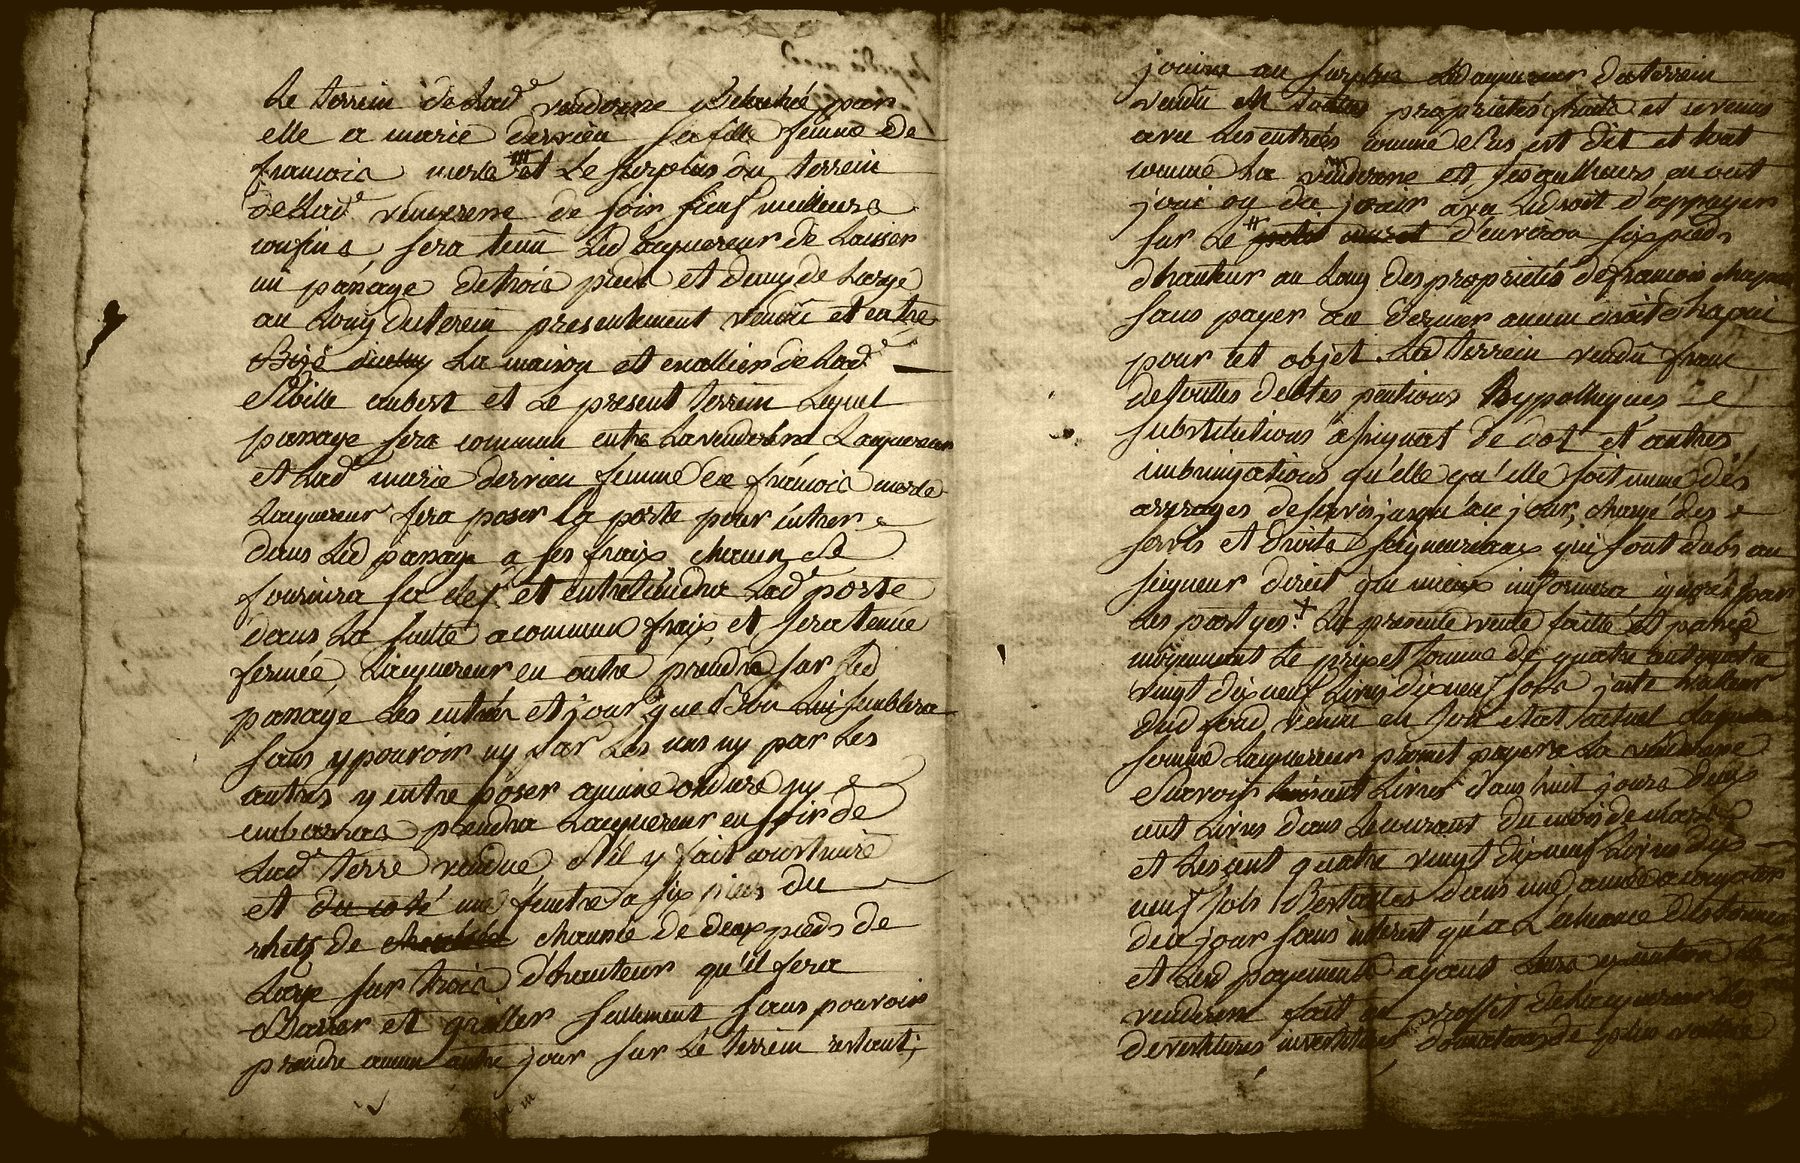 Le terrein de Lad.e venderesse par
elle a marie derrieu sa fille femme de
francois merle et Le surplus du terrein
de Lad.e venderesse de soir sauf meilleurs
confins, sera tenu Led acquereur de Laisser
un passage de trois pieds et demy de Large
au Long du terein presentement vendu et entre
La maison et escallier de Lad.e
Sibille aubert et Le present terrein Lequel
passage sera commun entre La venderesse Lacquereur
et Lad.e marie derrieu femme de francois merle
Lacquereur fera poser La porte pour entrer
dans Led passage a ses fraix chacun se
fournira sa clef et entretiendra Lad.e porte
dans La suitte a commun fraix, et sera tenue
fermée, Lacquereur en outre prendra sur Led
passage Les entrées et jour que Bon Lui semblera
sans y pouvoir ny par Les uns ny par Les
autres y entreposer aucune ordure ny
embarras prendra Lacquereur en soir de
Lad.e terre vendue, s'il y fait construire
et du coté une fenetre a six pieds du
rhets de chaussée de deux pieds de
Large sur trois d'hauteur qu'il fera
Barrer et griller sans pouvoir
prendre aucun autre jour sur Le terrein restant;
jouira au surplus Led acquereur du terrein
vendu en toutes proprietés fruits et revenus
avec Les entrées comme dessus est dit et tout
comme La venderesse et ses autheurs en ont
joui ou du jouir avec Le droit d'appuyer
sur Le petit muret d'environ six pieds
d'hauteur au Long des proprietés de francois
sans payer au dernier aucun droit
pour cet objet. Led terrein vendu franc
de touttes debtes pentions hyppotheques
substitutions de dot et autres
qu'elle qu'elle soit meme des
arrerages de servis jusqu'a ce jour, chargé des
servis et droits seigneuriaux qui sont dubs au
seigneur direct qui mieux informera ignoré par
Les partyes. La presente vente faitte et passée
moyennant Le prix et somme de quatre cent quatre
vingt dix neuf Livres dix neuf sols juste valleur
dud fond vendu en son etat actuel Laquelle
somme Lacquereur promet payer a La venderesse
scavoir Livres dans huit jours deux
cent Livres dans Le courant du mois de mars
et Les cent quatre vingt dix neuf Livres dix
neuf sols Restantes dans une année a compter
de ce jour sans interest qu'a L'echeance des termes
et Led payements
venderesse fait au proffit de Lacquereur Les
devestitures investitures de plus vallue